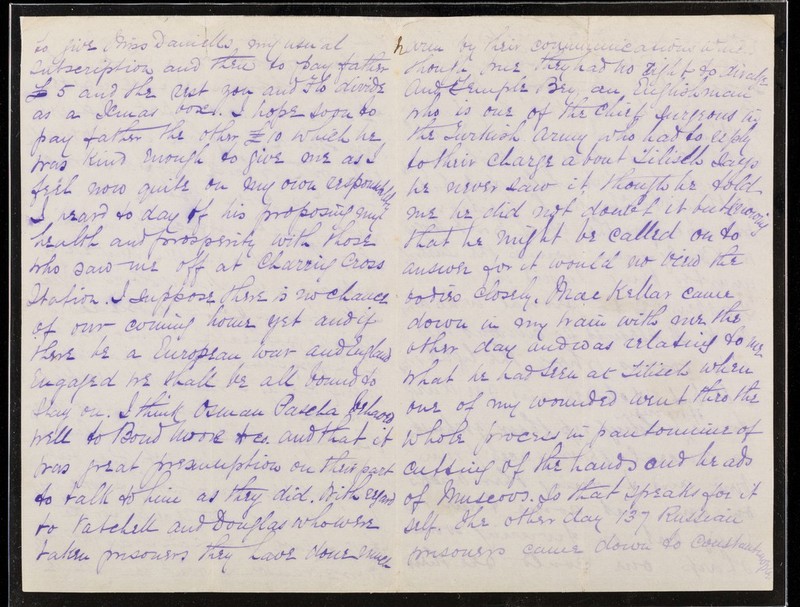 to give Miss Daniells, my usual
subscription and then to pay father
£5 and the rest you and Flo divide
as a Xmas box. I hope soon to
pay father the other £10 which he
was kind enough to give me as I
feel now quite on my own responsibility
I heard to day of his proposing my
health and prosperity with those
who saw me off at Charing Cross
Station. I suppose there is no chance
of our coming home yet and if
there be a European war and England
engaged we shall be all bound to
stay on. I think Osman Pasha behaved
well to Bond Moore & co. and that it
was great presumption on their part
to talk to him as they did. With regard
to Vatchell and Douglas who were
taken prisoners they have done much
harm by their communications
though true they had no right to divulge
and Temple Bey an Englishman
who is one of the chief surgeons in
the Turkish Army who had to reply
to their charge about Tilisch says
he never saw it though he told
me he did not doubt it but knowing
that he might be called on to
answer for it would no view the
bodies closely. MacKellar came
down in my train with me the
other day and was relating to me
what he had seen at Tilisch when
one of my wounded went thro the
whole process in pantomime of
cutting of the hands and heads
of Muscovs. So that speaks for it
self. The other day 137 Russian
prisoners came down to Constantinople